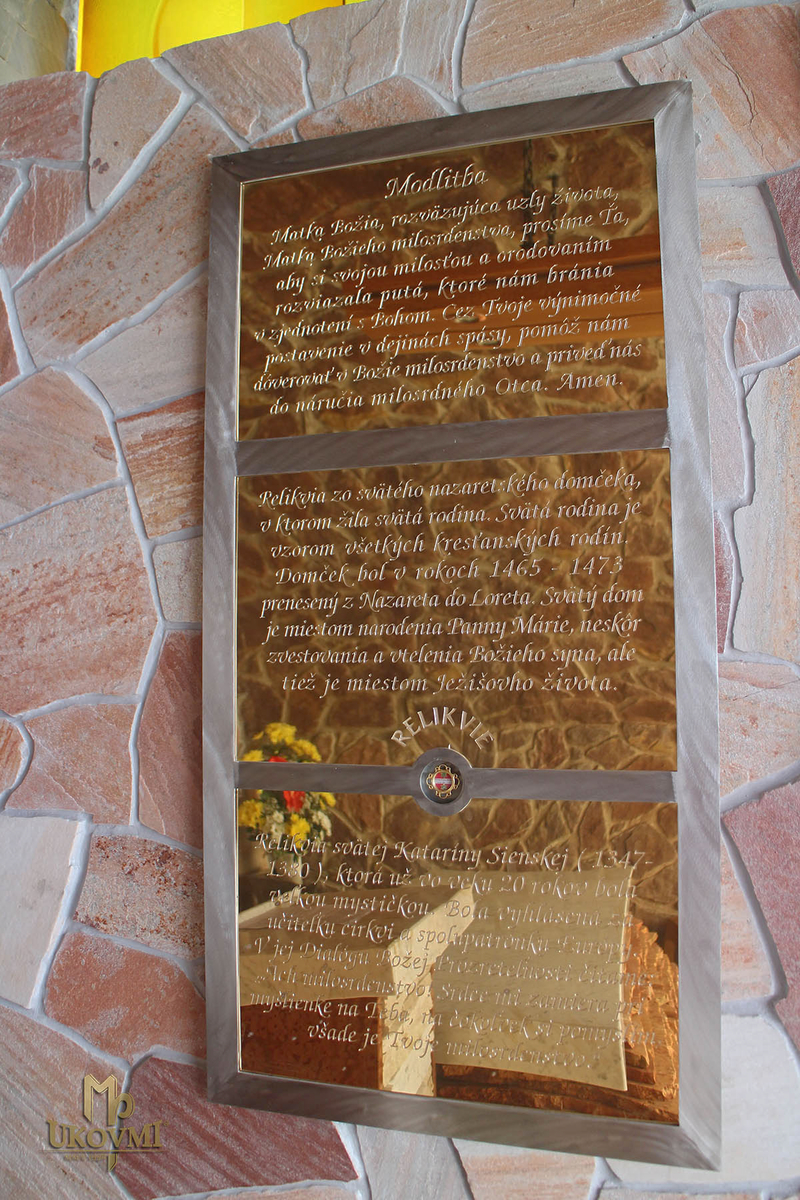 Modlitba
Matka Božia, rozväzujúca uzly života,
Matka Božieho milosrdenstva, prosíme Ťa,
aby si svojou milosťou a orodovaním
rozviazala putá, ktoré nám bránia
v zjednotení s Bohom. Cez Tvoje výnimočné
postavenie v dejinách spásy, pomôž nám
dôverovať v Božie milosrdenstvo a priveď nás
do náručia milosrdného Otca. Amen.
Relikvia zo svätého nazaretského domčeka,
v ktorom žila svätá rodina. Svätá rodina je
vzorom všetkých kresťanských rodín.
Domček bol v rokoch 1465 - 1473
prenesený z Nazareta do Loreta. Svätý dom
je miestom narodenia Panny Márie, neskôr
zvestovania a vtelenia Božieho syna, ale
tiež je miestom Ježišovho života.
RELIKVIE
Relikvia svätej Kataríny Sienskej ( 1347-
1380 ), ktorá už vo veku 20 rokov bola
veľkou mystičkou. Bola vyhlásená za
učiteľku cirkvi a spolupatrónku Európy.
V jej Dialógu Božej Prozreteľnosti čítame:
„Ach milosrdenstvo! Srdce mi zamiera pri
myšlienke na Teba, na čokoľvek si pomyslím,
všade je Tvoje milosrdenstvo!“
MP
UKOVMI